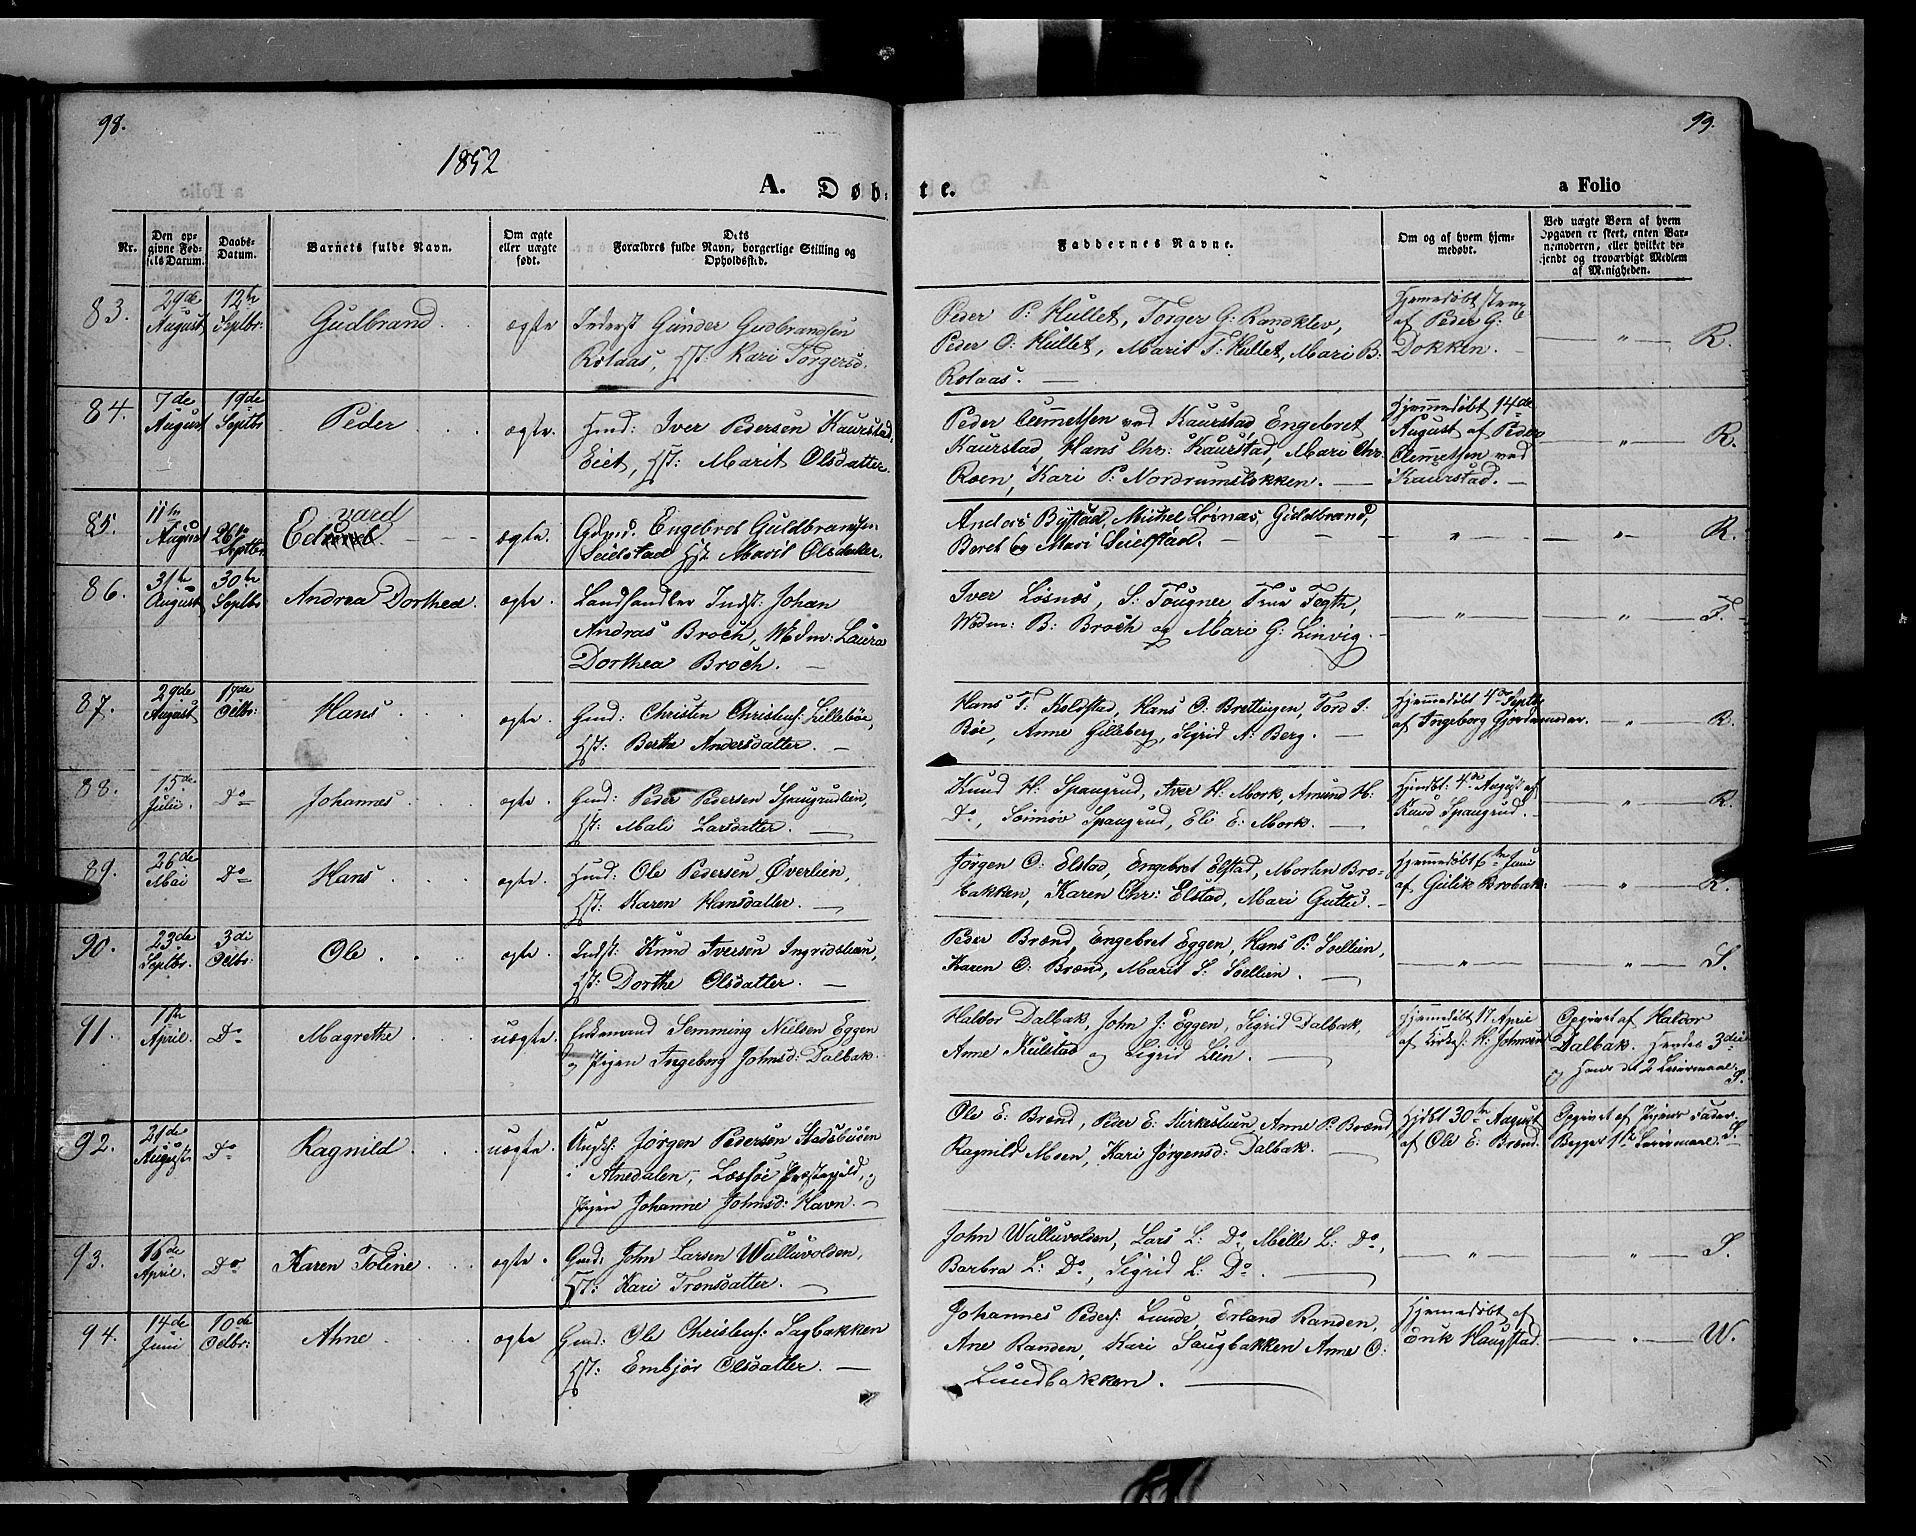 98.
99.
1852
A. Døb-
te.
a Folio
Nr.
Den op-
givne Fød-
sels Datum.
Daabs-
Datum.
Barnets fulde Navn.
Om ægte
eller uægte
født.
Dets
Forældres fulde Navn, borgerlige Stilling og
Opholdssted.
Faddernes Navne.
Om og af hvem hjem-
medøbt.
Ved uægte Børn af hvem
Opgaven er skeet, enten Bar-
nemoderen, eller hvilket be-
kjendt og troværdigt Medlem
af Menigheden.
83.
29de
August
12te
Septbr:
Gudbrand
ægte
Inderst Gunder Gudbrandsen
Rolaas, Hst: Kari Torgersd.
Peder P: Hullet, Torger G: Randklev,
Peder O: Hullet, Marit T: Hullet, Mari B:
Rolaas.
Hjemmedøbt
af Peder G:
Dokken.
R.
84.
7de
August
19de
Septbr
Peder
ægte.
Hmd: Iver Pedersen Kaurstad
Eiet, Hst: Marit Olsdatter
Peder Clemetsen ved Kaurstad, Engebret
Kaurstad, Hans Chr: Kaurstad, Mari Chr:
Roen, Kari P: Nordrumsløkken.
Hjemmedøbt 14de
August af Peder
Clemetsen ved
Kaurstad.
R.
85.
11te
August
26de
Septbr
Edvard
ægte.
Gdmd. Engebret Guldbrandsen
Seielstad Hst Marit Olsdatter.
Anders Bystad, Michel Losnæs, Guldbrand,
Beret og Mari Seielstad.
R.
86.
31te
August
30te
Septbr
Andrea Dorthea.
ægte.
Landhandler Indst: Johan
Andras Broch, Mdm: Laura
Dorthea Broch.
Iver Losnæs, S: Tougner Frue Tegth,
Mdm: B: Broch og Mari G: Linvig.
T.
87.
29de
August
1de
Octbr:
Hans
ægte.
Gmd: Christen Christens: Lillebøe,
Hst: Berthe Andersdatter.
Hans T. Koldstad, Hans O: Brettingen, Tord I:
Bøe, Anne Gilleberg, Sigrid A: Berg.
Hjemmedøbt 4de Septbr
af Ingeborg Gjordemoder.
R.
88.
15de
Julii.
Do
Johannes.
ægte.
Gmd: Peder Pedersen Spangrudlien,
Hst: Mali Larsdatter.
Knud H: Spangrud, Iver H: Mork, Amund H:
Do, Sønnøv Spangrud, Eli E: Mork.
Hjmdbt: 4de August af
Knud Spangrud.
R.
89.
26de
Mai
Do
Hans
ægte.
Hmd: Ole Pedersen Øverlien,
Hst: Karen Hansdatter.
Jørgen O: Elstad, Engebret Elstad, Morten Bro-
bakken, Karen Chr: Elstad, Mari Guttu.
Hjemmedøbt 6te Juni
af Gulik Brobak:
R.
90.
23de
Septbr.
3die
Octbr:
Ole
ægte.
Indst: Knud Iversen Ingridstuen,
Hst: Dorthe Olsdatter.
Peder Brænd, Engebret Eggen, Hans P: Soellien,
Karen O: Brænd, Marit S: Soellien.
S.
91.
11te
April.
Do
Magrethe
uægte.
Enkemand Semming Nielsen Eggen
og Pigen Ingeborg Johnsd: Dalbak.
Haldor Dalbak, John J: Eggen, Sigrid Dalbak,
Anne Keilstad og Sigrid Lien.
Hjemmedøbt 17 April
af Kirkes: H: Johnsen
Opgivet af Haldor
Dalbak. Hendes 3die
og Hans det 2 Leiermaal
S.
92.
21de
August
Do
Ragnild
uægte.
Ungk: Jørgen Pedersen Stadsbuøen
i Atnedalen, Læssøe Præstegjeld, og
Pigen Johanne Johnsd: Havn.
Ole E: Brænd, Peder E: Kirkestuen, Anne P: Brænd
Ragnild Moen, Kari Jørgensd: Dalbak.
Hjdbt 30te August
af Ole E: Brænd.
Opgivet af Pigens Fader.
Begges 1te Leiermaal.
S.
93.
16de
April.
Do
Karen Toline
ægte.
Gmd. John Larsen Wulluvolden,
Hst: Kari Tronsdatter.
John Wulluvolden, Lars L: Do, Melle L: Do,
Barbra L: Do, Sigrid L: Do.
S.
94.
14de
Juni
10de
Octbr:
Ahne
ægte
Gmd: Ole Christens: Sagbakken
Hst: Embjør Olsdatter.
Johannes Peders: Lunde, Erland Randen,
Ane Randen, Kari Saugbakken Anne O:
Lundbakken.
Hjemmedøbt af
Erik Haugstad.
W.